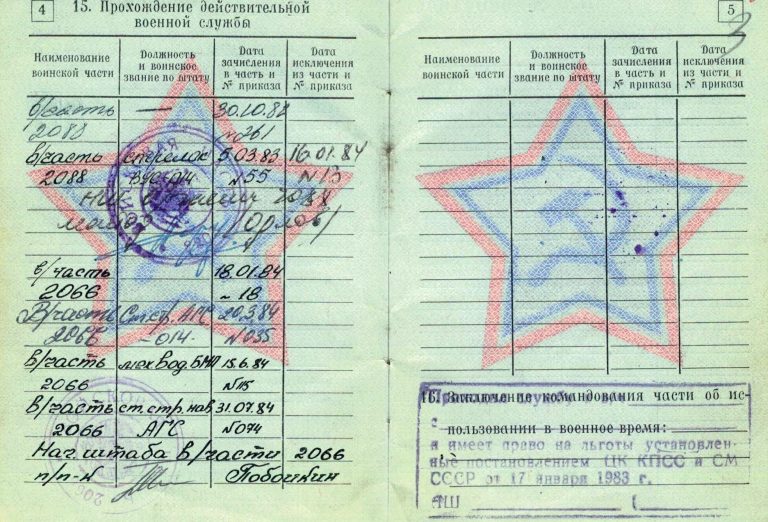 4
15. Прохождение действительной
военной службы
Наименование воинской части
Должность и воинское звание по штату
Дата зачисления в часть и № приказа
Дата исключения из части и № приказа
в/часть — 30.10.82
2088 №261
в/часть стрелок 5.03.83 16.01.84
2088 №55 №13
Нач. штаба 2088
майор (Орлов)
в/часть 18.01.84
2066 – 18
В/часть Ст.стр. АГС 20.3.84
2066 -014- №035
в/часть мех.вод. БМП 15.6.84
2066 №115
в/часть ст. стр. нав. 31.07.84
2066 АГС №074
Нач. штаба в/части 2066
п/п-к
5
3
Наименование воинской части
Должность и воинское звание по штату
Дата зачисления в часть и № приказа
Дата исключения из части и № приказа
16. Заключение командования части об ис-
пользовании в военное время:
и имеет право на льготы установлен-
ные постановлением ЦК КПСС и СМ
СССР от 17 января 1983 г.